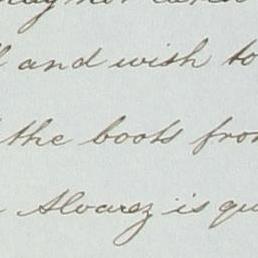 not
and wish to
the boots from
Alvarez is qu